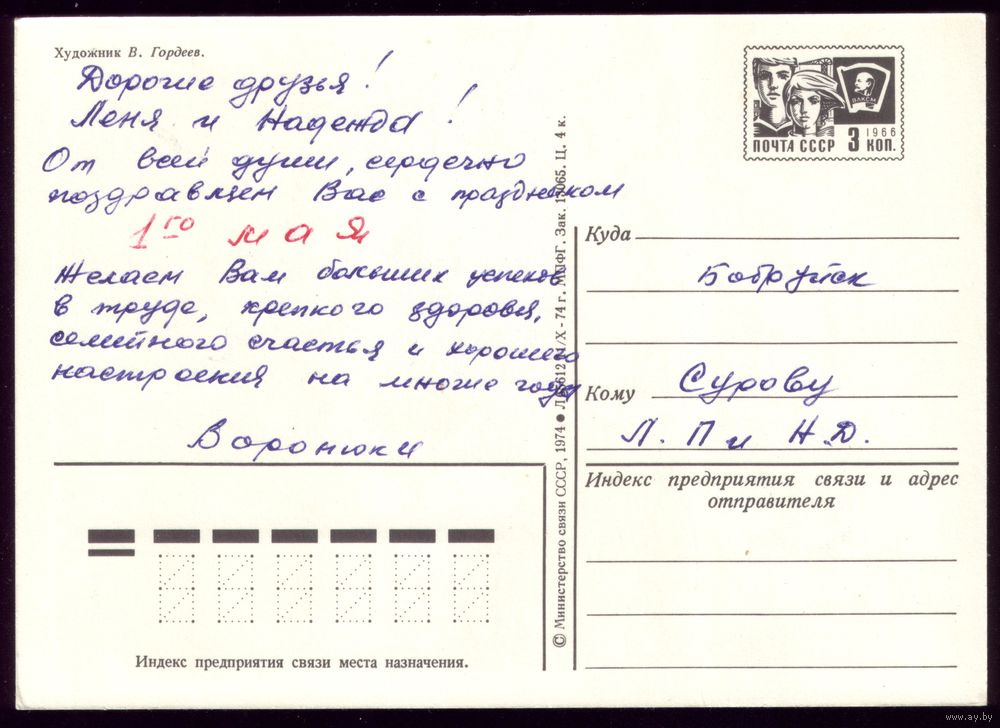 Художник В. Гордеев.
Дорогие друзья!
Леня и Надежда!
От всей души, сердечно
поздравляем Вас с праздником
1го мая
Желаем Вам больших успехов
в труде, крепкого здоровья,
семейного счастья и хорошего
настроения на многие годы
Воронюки
Индекс предприятия связи места назначения.
© Министерство связи СССР, 1974 ● Х-74 г. МПФГ. Зак. Ц. 4 к.
ВЛКСМ
1966
ПОЧТА СССР 3 КОП.
Куда
Бобруйск
Кому Сурову
Л. П и Н. Д.
Индекс предприятия связи и адрес
отправителя
www.ay.by